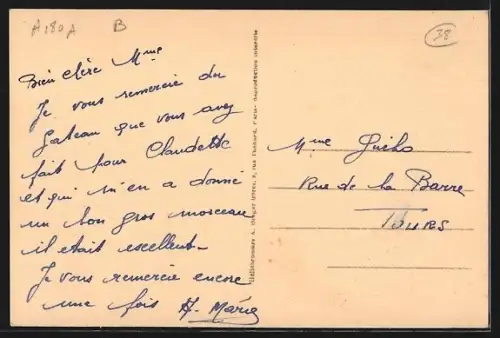 A180A B
38
Bien chère Mme
Je vous remercie du
gateau que vous avez
fait pour Claudette
et qui m'en a donné
un bon gros morceau
il était excellent.
Je vous remercie encore
une fois A. Marie
Mme Guiho
Rue de la Barre
Tours